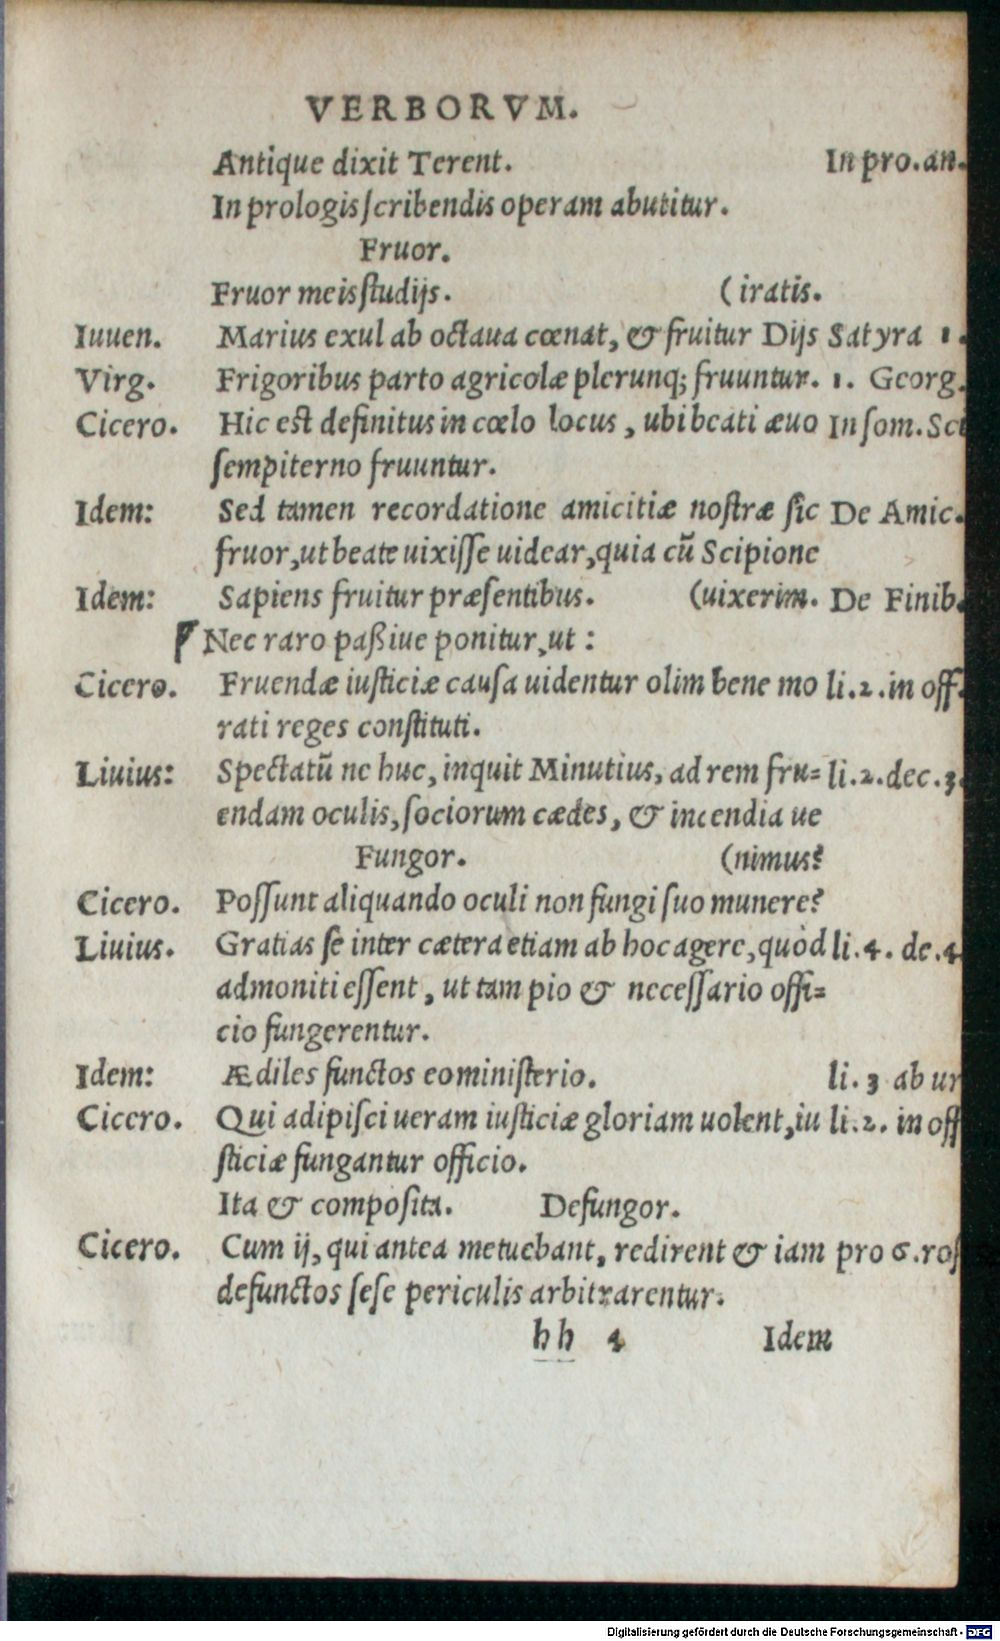 VERBORVM.
Antique dixit Terent. In pro.an.
In prologis scribendis operam abutitur.
Fruor.
Fruor meis studijs. (iratis.
Iuuen. Marius exul ab octaua cœnat, & fruitur Dijs Satyra 1.
Virg. Frigoribus parto agricolæ plerunq; fruuntur. 1. Georg.
Cicero. Hic est definitus in cœlo locus, ubi beati æuo In som. Sci
sempiterno fruuntur.
Idem: Sed tamen recordatione amicitiæ nostræ sic De Amic.
fruor, ut beate uixisse uidear, quia cū Scipione
Idem: Sapiens fruitur præsentibus. (uixerim. De Finib.
Nec raro paßiue ponitur, ut:
Cicero. Fruendæ iusticiæ causa uidentur olim bene mo li.2.in off.
rati reges constituti.
Liuius: Spectatū ne huc, inquit Minutius, ad rem fru= li.2.dec.3.
endam oculis, sociorum cædes, & incendia ue
Fungor. (nimus?
Cicero. Possunt aliquando oculi non fungi suo munere?
Liuius. Gratias se inter cætera etiam ab hoc agere, quòd li.4. de.4
admoniti essent, ut tam pio & necessario offi=
cio fungerentur.
Idem: Ædiles functos eo ministerio. li.3 ab ur
Cicero. Qui adipisci ueram iusticiæ gloriam uolent, iu li.2. in off
sticiæ fungantur officio.
Ita & composita. Defungor.
Cicero. Cum ij, qui antea metuebant, redirent & iam pro S.ros
defunctos sese periculis arbitrarentur.
hh 4 Idem
Digitalisierung gefördert durch die Deutsche Forschungsgemeinschaft - DFG